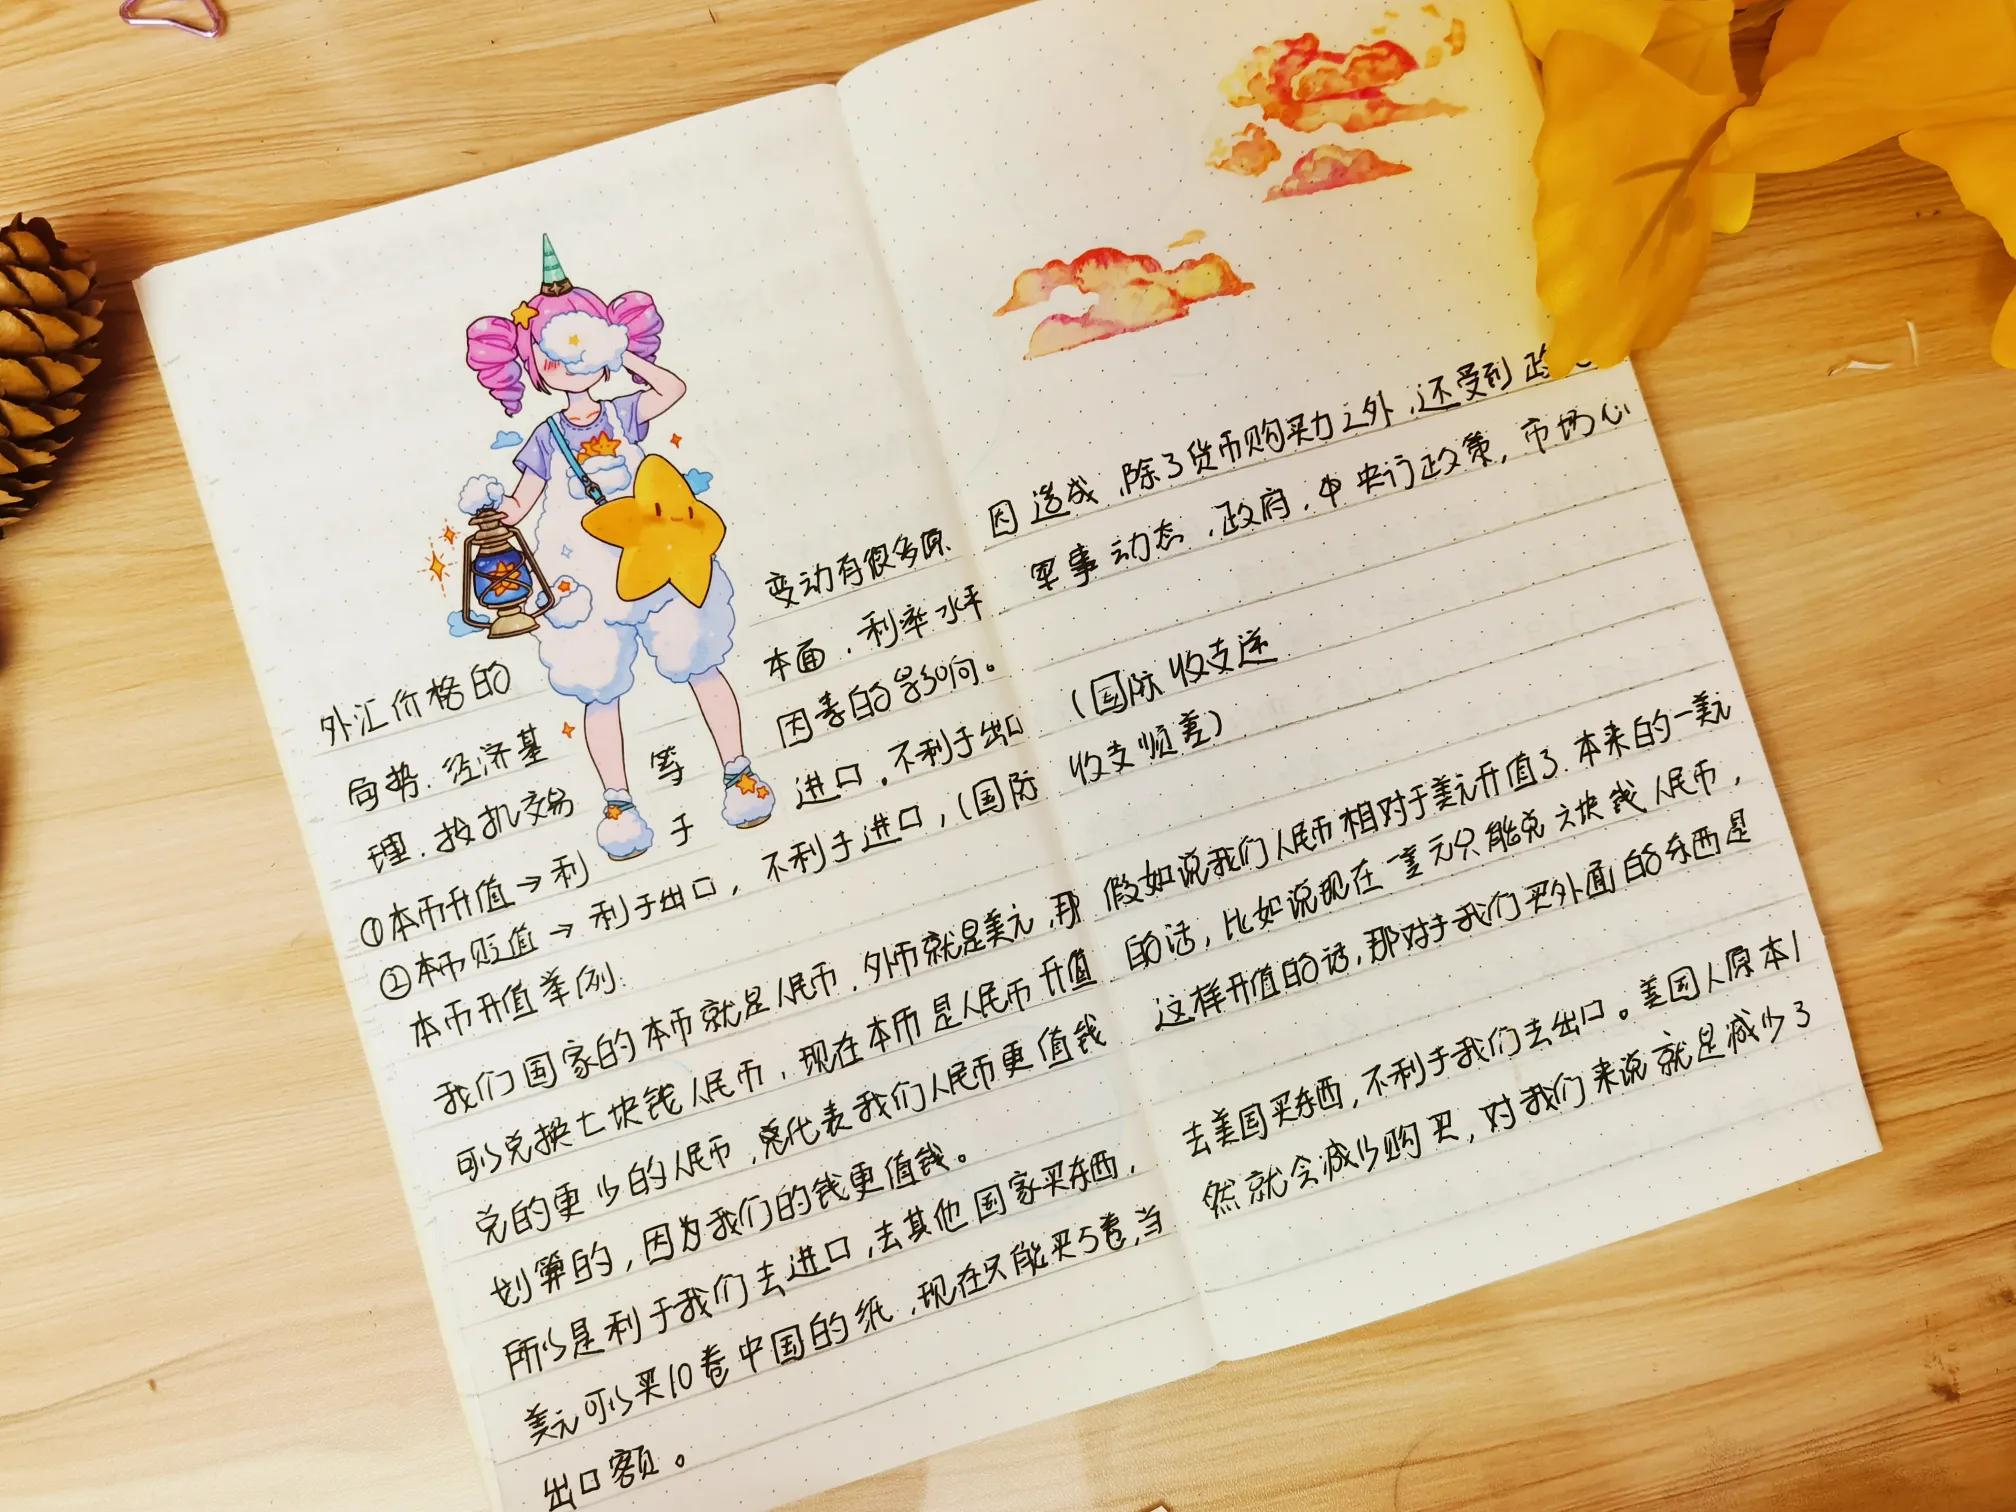 外汇价格的变动有很多原因造成,除了货币购买力之外,还受到政
局势、经济基本面、利率水平、军事动态、政府、中央行政策,市场心
理、投机交易等因素的影响。
①本币升值→利于进口,不利于出口(国际收支逆
②本币贬值→利于出口,不利于进口,(国际收支顺差)
本币升值举例:
我们国家的本币就是人民币,外币就是美元,那假如说我们人民币相对于美元升值了.本来的一美元
可以兑换七块钱人民币,现在本币是人民币升值的话,比如说现在一美元只能兑六块钱人民币,
兑的更少的人民币,代表我们人民币更值钱这样升值的话,那对于我们买外面的东西是
划算的,因为我们的钱更值钱。
所以是利于我们去进口,去其他国家买东西,去美国买东西,不利于我们去出口。美国人原本1
美元可以买10卷中国的纸,现在只能买5卷,当然就会减少购买,对我们来说就是减少了
出口额。